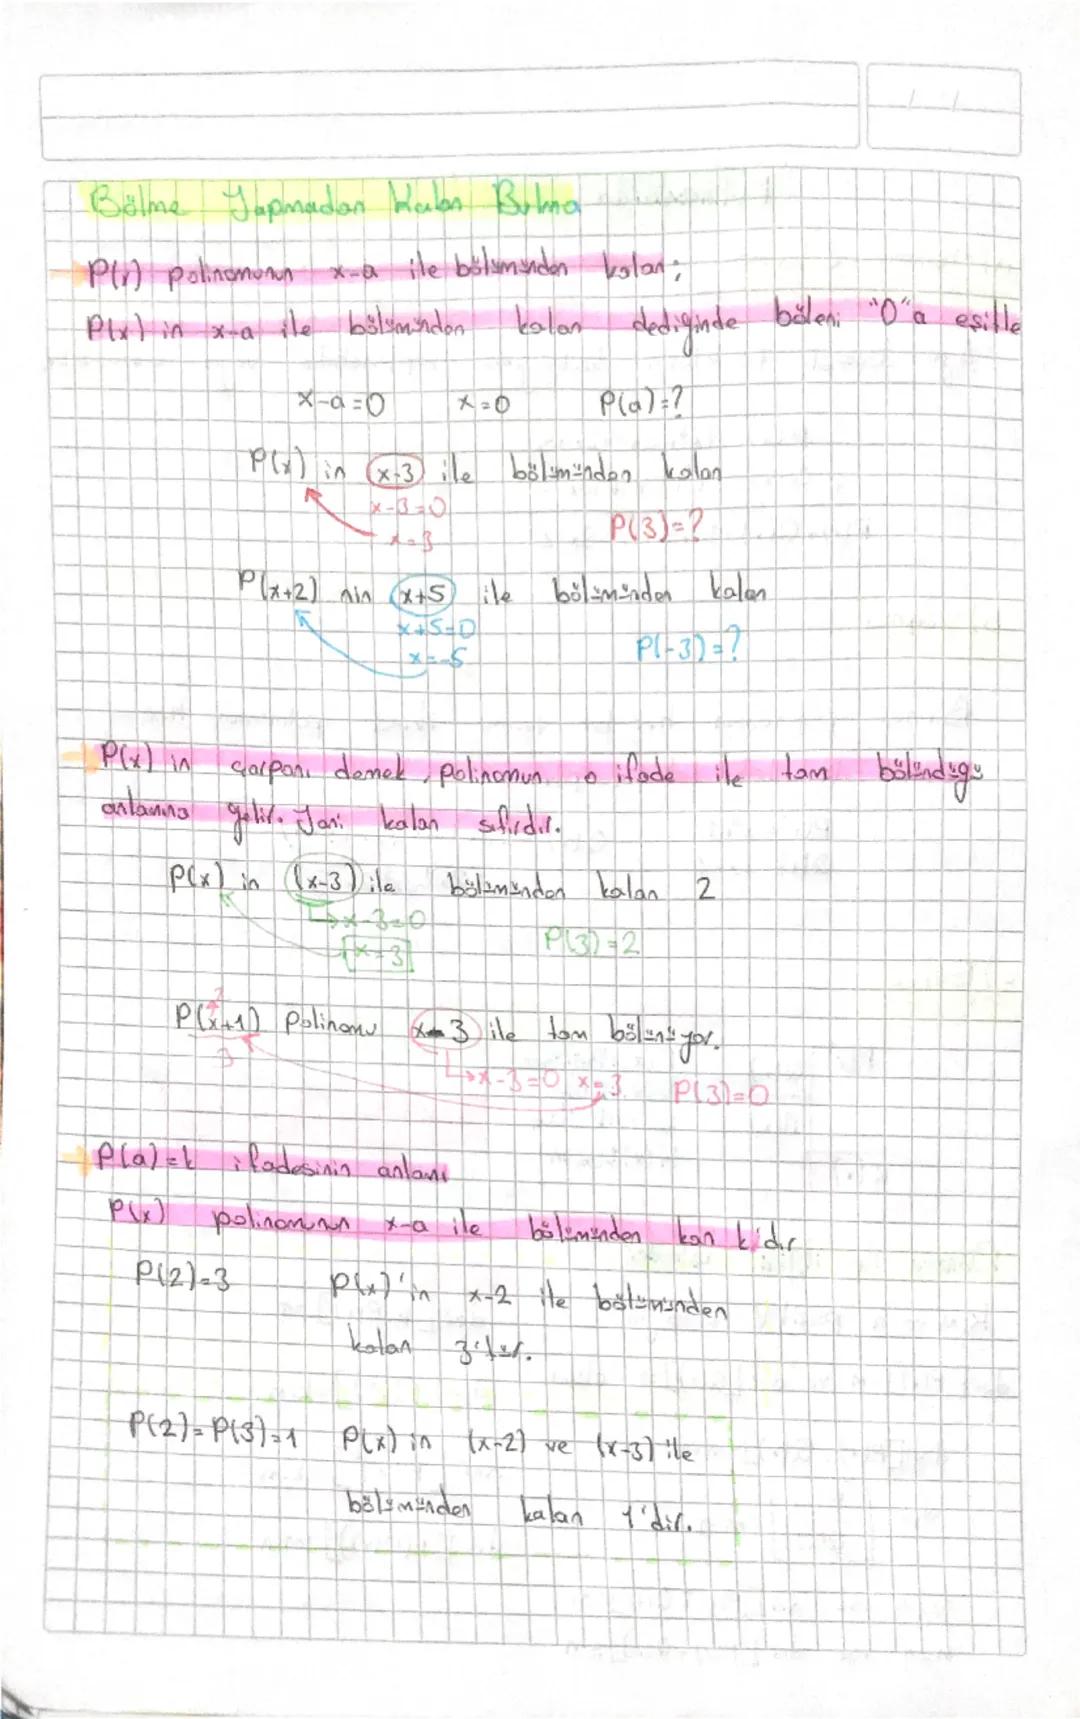 Bölme Yapmadan Kalan Bulma
P(x) polinomunun x-a ile bölümünden kalan;
P(x) in x-a ile bölümünden kalan dediğinde böleni "0"a eşitle
x-a=0 x=0 P(a)=?
P(x) in (x-3) ile bölümünden kalan
x-3=0
x=3
P(3)=?
P(x+2) nin (x+5) ile bölümünden kalan
x+5=0
x=-5
P(-3)=?
P(x) in çarpanı demek, polinomun o ifade ile tam bölündüğü
anlamına gelir. Yani kalan sıfırdır.
P(x) in (x-3) ile bölümünden kalan 2
x-3=0
x=3
P(3)=2
P(x+1) Polinomu x-3 ile tam bölünüyor.
3
x-3=0 x=3 P(3)=0
P(a)=k ifadesinin anlamı
P(x) polinomunun x-a ile bölümünden kan k'dır
P(2)=3 P(x)'in x-2 ile bölümünden
kalan 3'tür.
P(2)=P(3)=1 P(x) in (x-2) ve (x-3) ile
bölümünden kalan 1'dir.